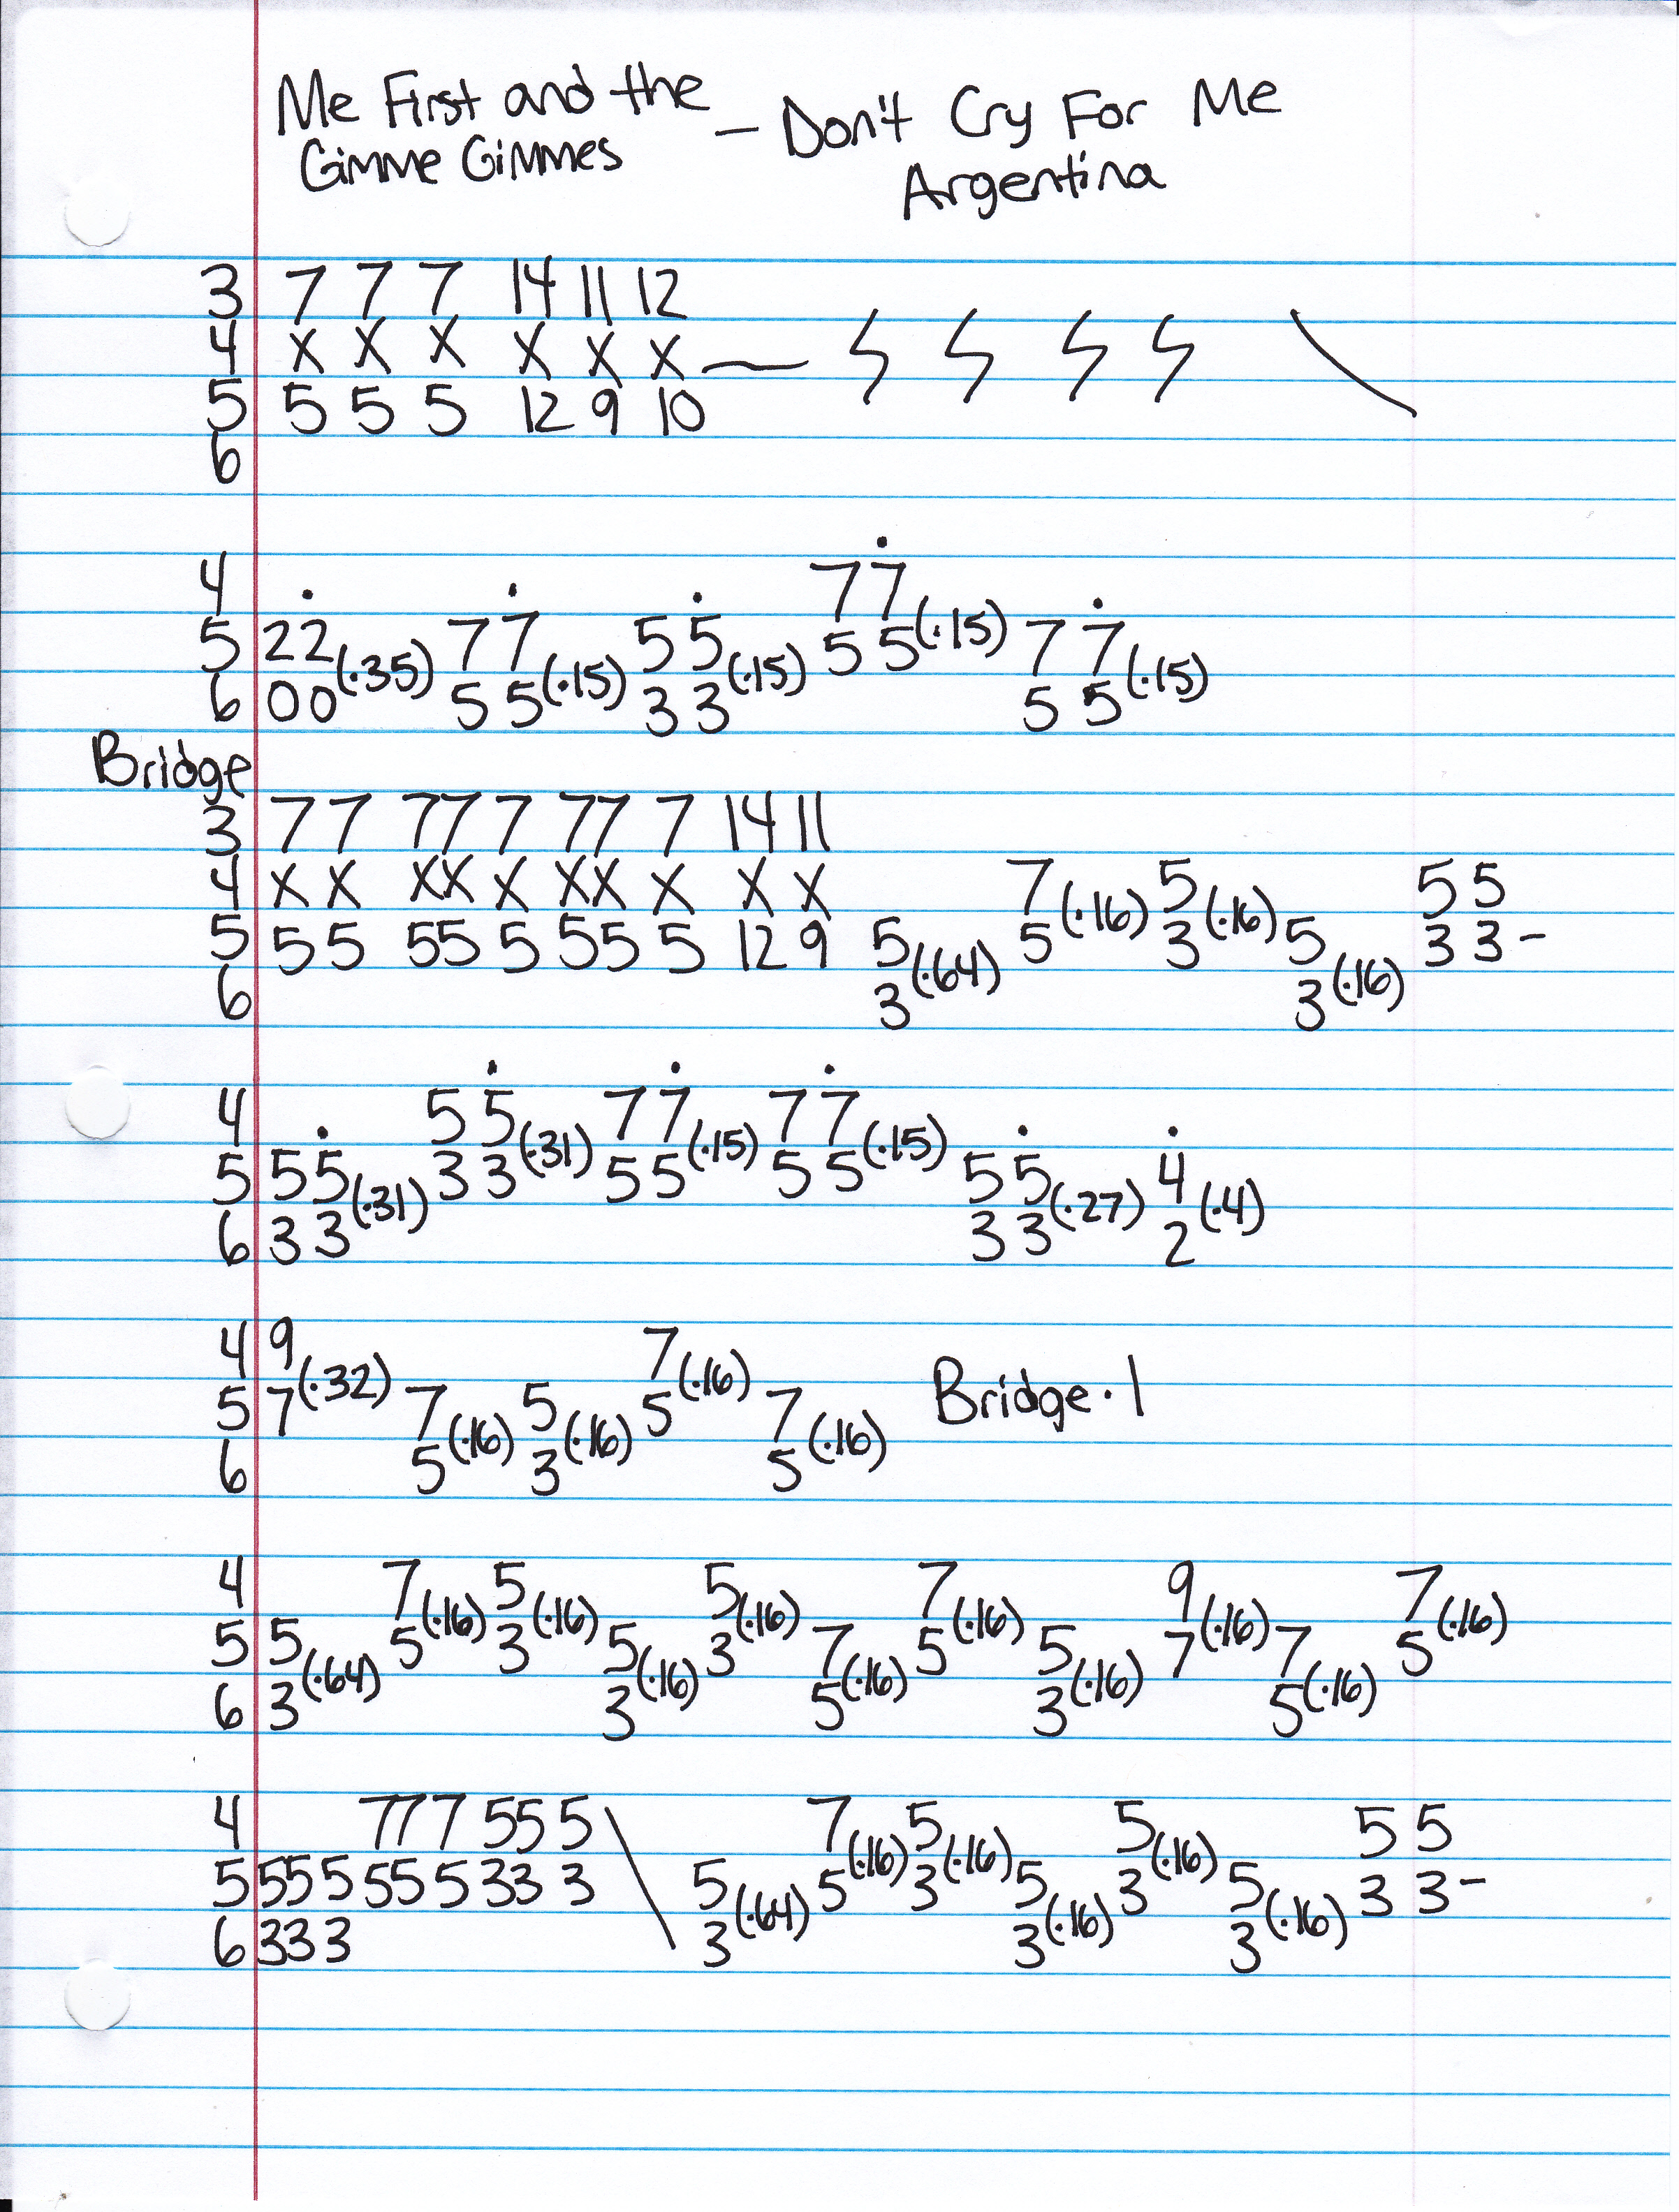 Me First and the — Don't Cry For Me
Gimme Gimmes Argentina
3 7 7 7 14 11 12
4 x x x x x x
5 5 5 5 12 9 10
6
4 7 7
5 2 2 (.35) 7 7 5 5 5 5 (.15) 7 7
6 0 0 5 5 (.15) 3 3 (.15) 5 5 (.15)
Bridge
3 7 7 77 7 77 7 14 11
4 x x xx x xx x x x 7 5 5 5
5 5 5 55 5 55 5 12 9 5 5 (.16) 3 (.16) 5 3 3 -
6 3 (.64) 3 (.16)
4 5 5 7 7 7 7
5 5 5 3 3 (.31) 5 5 (.15) 5 5 (.15) 5 5 4
6 3 3 (.31) 3 3 (.27) 2 (.4)
4 9 7
5 7 (.32) 7 5 5 (.16) 7 Bridge.1
6 5 (.16) 3 (.16) 5 (.16)
4 7 5 5 7 9 7
5 5 5 (.16) 3 (.16) 5 3 (.16) 7 5 (.16) 5 7 (.16) 7 5 (.16)
6 3 (.64) 3 (.16) 5 (.16) 3 (.16) 5 (.16)
4 77 7 55 5 7 5 5 5 5
5 55 5 55 5 33 3 5 5 (.16) 3 (.16) 5 3 (.16) 5 3 3 -
6 33 3 3 (.64) 3 (.16) 3 (.16)